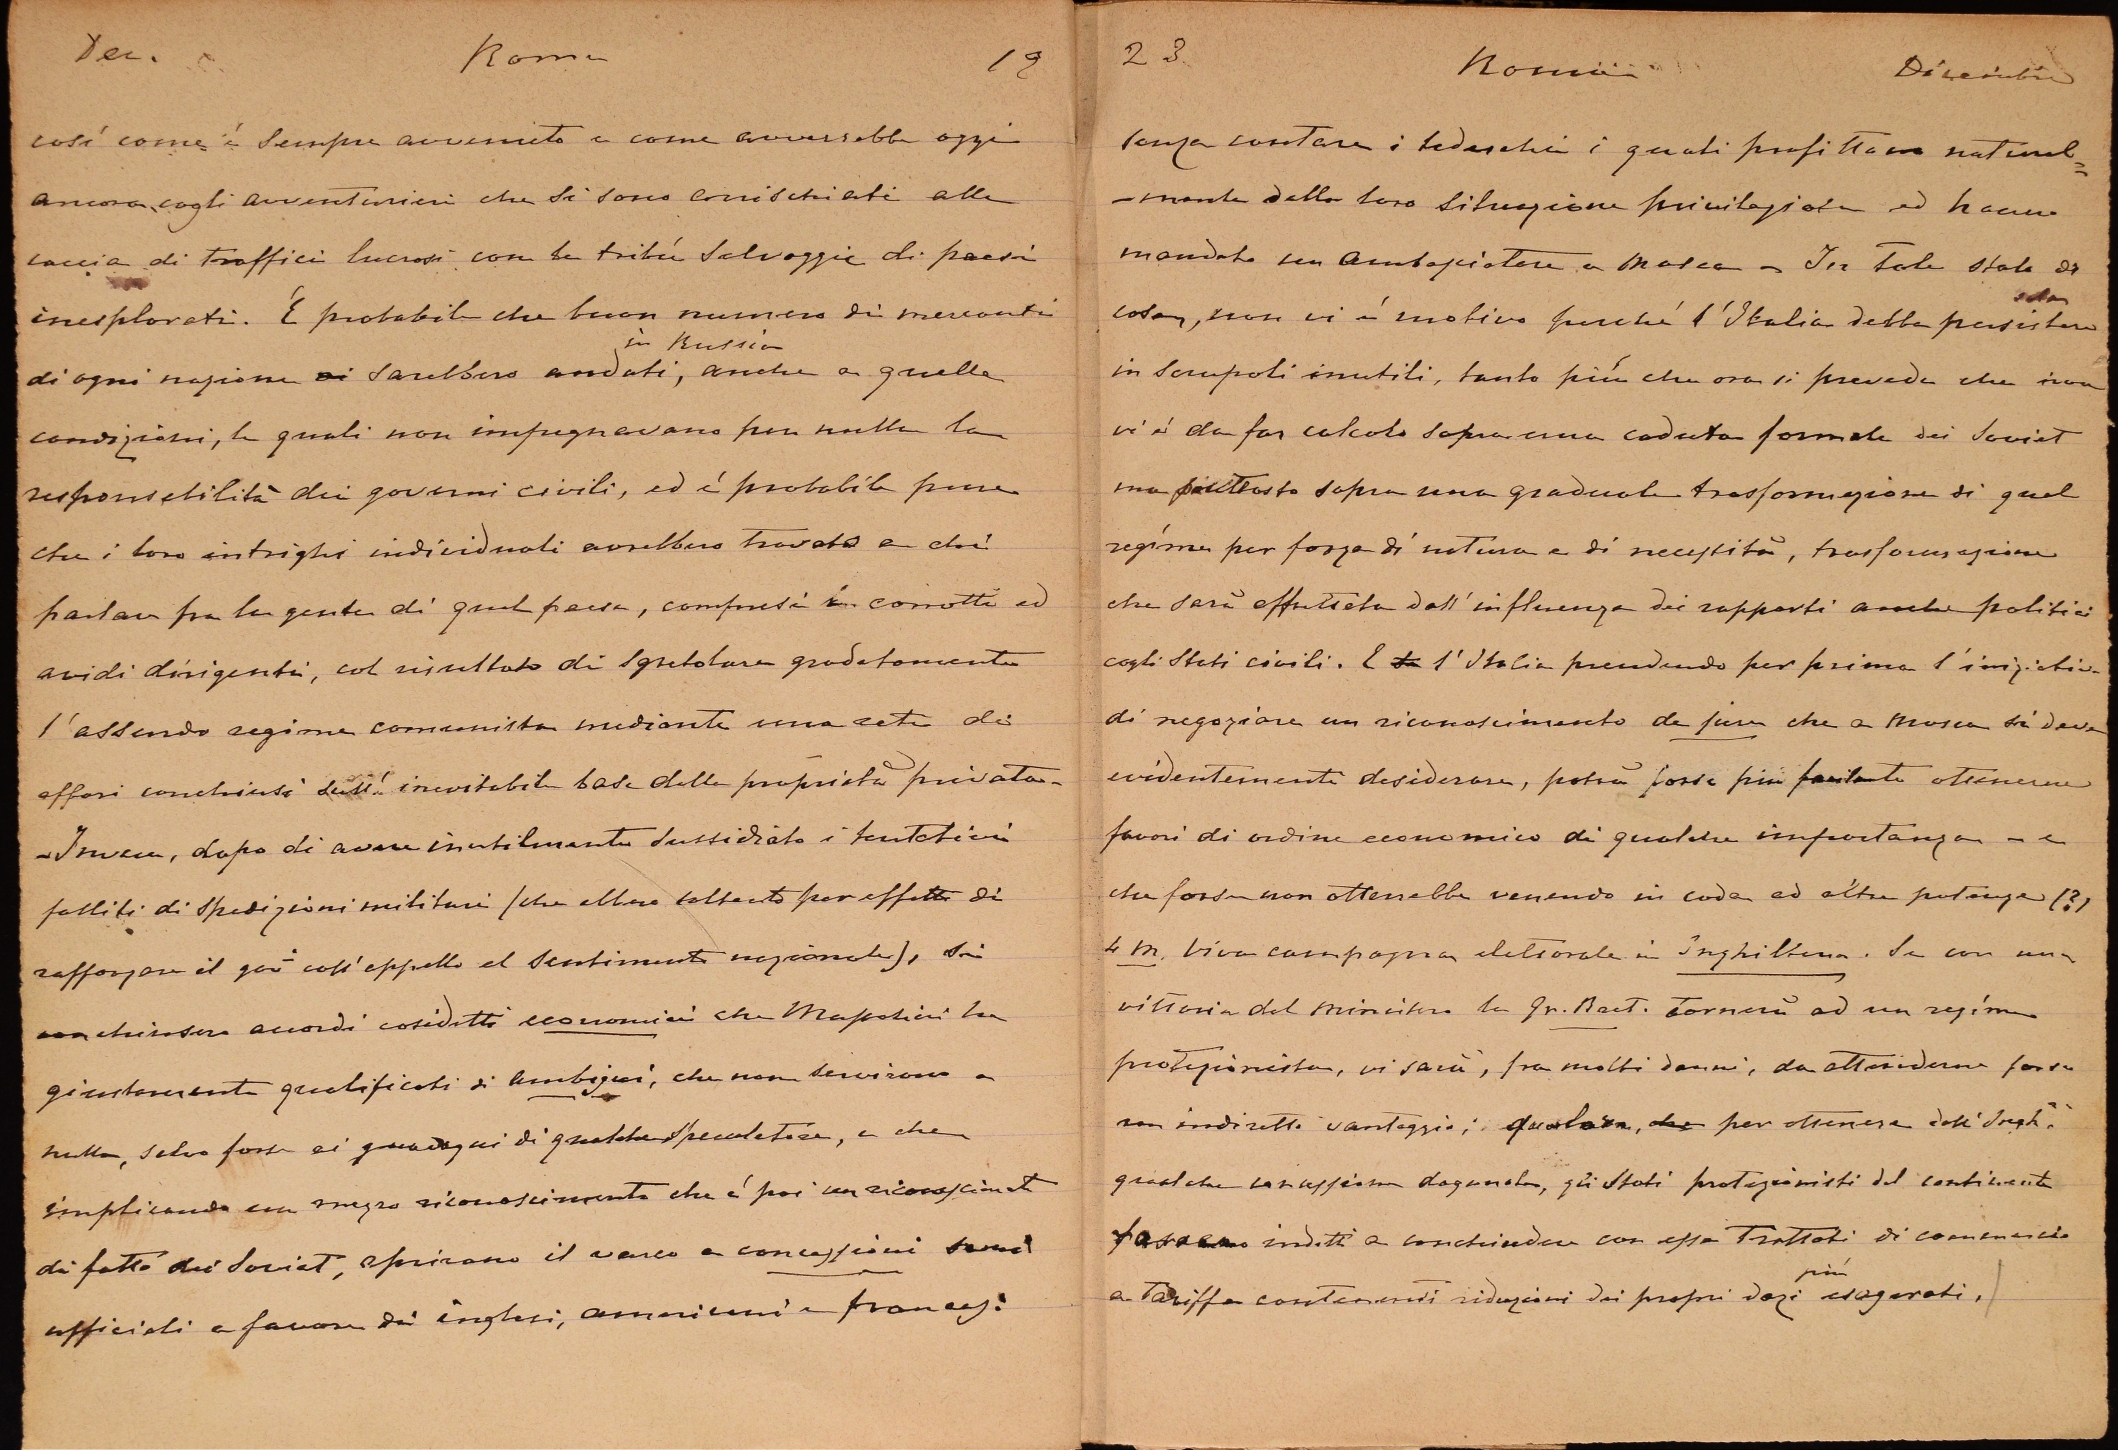 Dec. Roma 19
così come è sempre avvenuto e come avverrebbe oggi
ancora, cogli avventurieri che si sono arrischiati alla
caccia di traffici lucrosi con le tribú selvaggie di paesi
inesplorati. É probabile che buon numero di mercanti
in Russia
di ogni nazione si sarebbero andati, anche a quelle
condizioni, le quali non impegnavano per nulla la
responsabilità dei governi civili, ed é probabile pure
che i loro intrighi individuali avrebbero trovato a chi
parlare fra la gente di quel paese, compresi i corrotti ed
avidi dirigenti, col risultato di sgretolare gradatamente
l'assurdo regime comunista mediante una rete di
affari conchiusi sull'inevitabile base della proprietà privata.
- Invece, dopo di avere inutilmente sussidiato i tentativi
falliti di spedizioni militari (che ebbero soltanto per effetto di
rafforzare il gov.º coll'appello al sentimento nazionale), si
conchiusero accordi cosidetti economici che Mussolini ha
giustamente qualificati di ambigui, che non servirono a
nulla, salvo forse ai guadagni di qualche speculatore, e che
implicando un mezzo riconoscimento che é poi un riconoscimento
di fatto dei Soviet, aprirono il varco a concessioni semi
ufficiali a favore di inglesi, americani e francesi
23 Roma Dicembre
senza contare i tedeschi i quali profittano natural=
-mente della loro situazione privilegiata ed hanno
mandato un ambasciatore a Mosca - In tale stato di
sola
cose, non vi é motivo perché l'Italia debba persistere
in scrupoli inutili, tanto più che ora si prevede che non
vi é da far calcolo sopra una caduta formale dei Soviet
ma piuttosto sopra una graduale trasformazione di quel
regime per forza di natura e di necessità, trasformazione
che sarà effettuata dall'influenza dei rapporti anche politici
cogli Stati civili. E l'Italia prendendo per prima l'iniziativa
di negoziare un riconoscimento de jure che a Mosca si deve
evidentemente desiderare, potrà forse più facilmente ottenerne
favori di ordine economico di qualche importanza - e
che forse non otterrebbe venendo in coda ad altre potenze (?)
4 M. Viva campagna elettorale in Inghilterra. Se con una
vittoria del ministero la Gr. Bret. tornerà ad un regime
protezionista, vi sarà, fra molti danni, da attendere forse
un indiretto vantaggio; qualora, che per ottenere dall'Ingh.ª
qualche concessione doganale, gli Stati protezionisti del continente
fossero indotti a conchiudere con essa Trattati di commercio
più
a tariffa contenenti riduzioni dei propri dazi esagerati.